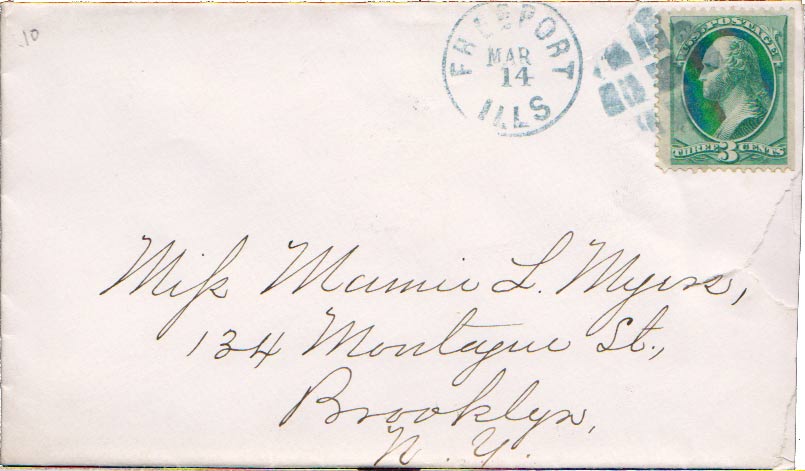 .10
FREEPORT
MAR
14
ILLS
U.S. POSTAGE
THREE 3 CENTS
Miss Mamie L. Myers,
134 Montague St.,
Brooklyn,
N. Y.